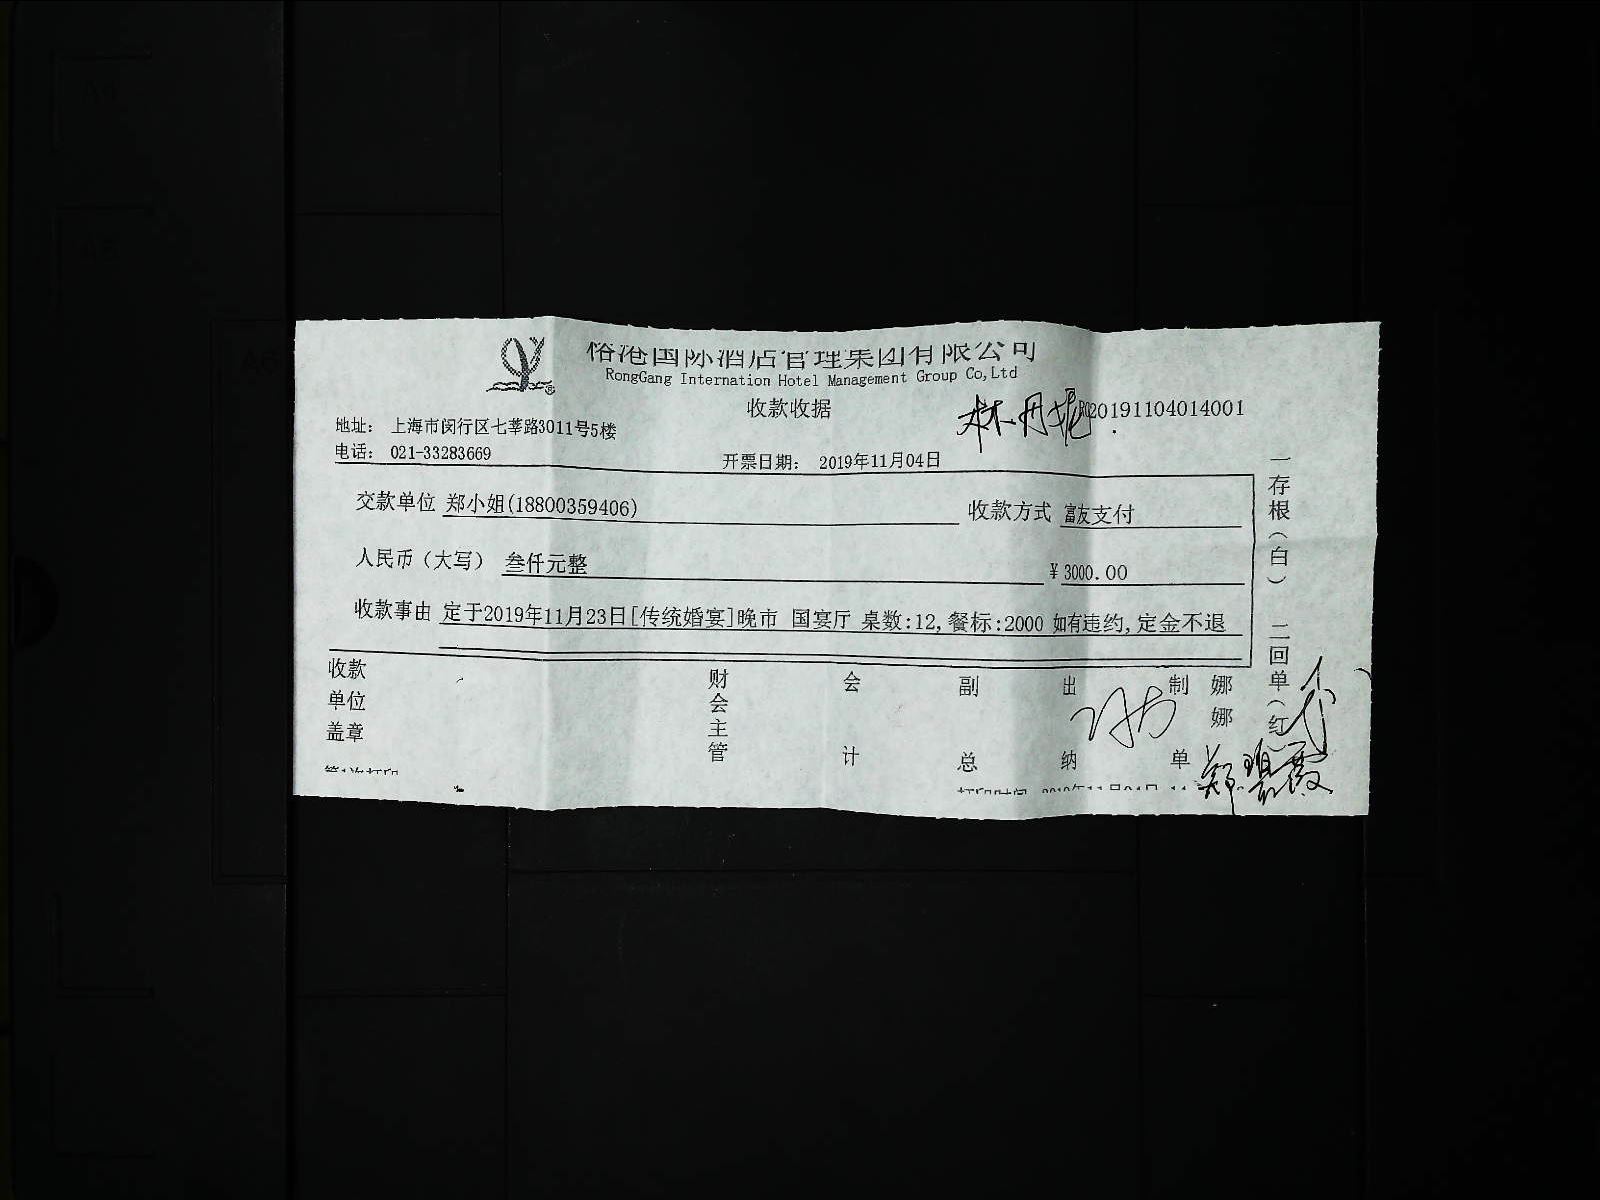 俗港国际酒店管理集团有限公司
RongGang Internation Hotel Management Group Co,Ltd
收款收据
林丹妮 20191104014001
地址： 上海市闵行区七莘路3011号5楼
电话： 021-33283669
开票日期： 2019年11月04日
交款单位 郑小姐(18800359406) 收款方式 富友支付
人民币（大写） 叁仟元整 ¥3000.00
收款事由 定于2019年11月23日[传统婚宴]晚市 国宴厅 桌数:12,餐标:2000 如有违约,定金不退
收款单位盖章 财会主管 会计 副总 出纳 制单 娜娜
一存根（白） 二回单（红
第1次打印
打印时间 2019年11月04日
郑碧霞